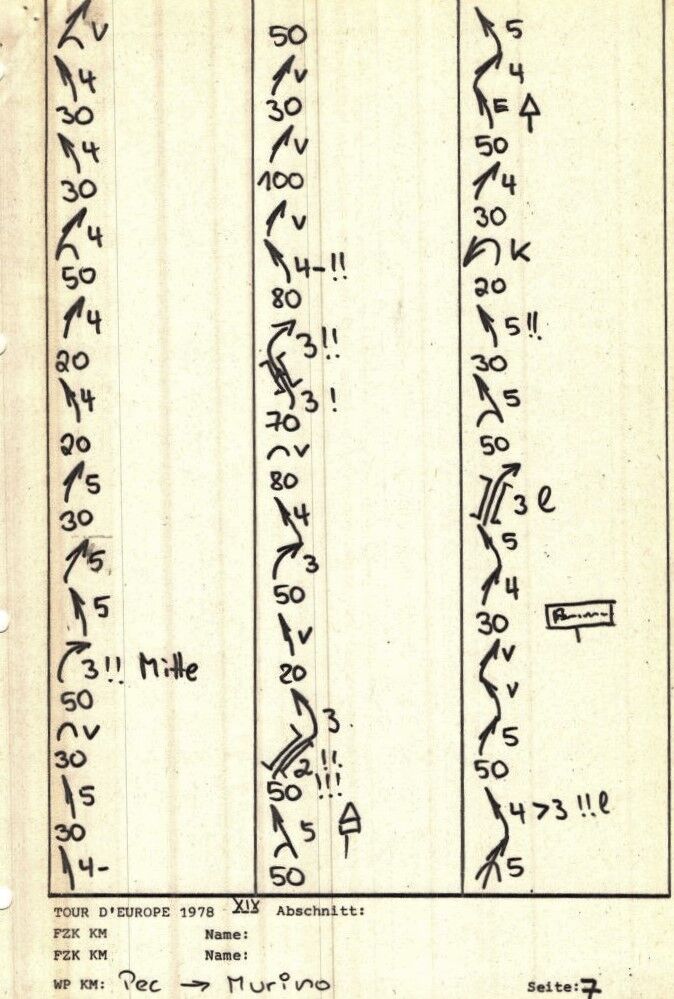 V
4
30
4
30
4
50
4
20
4
20
5
30
5
5
3!! Mitte
50
V
30
5
30
4-
50
V
30
V
100
V
4-!!
80
3!!
3!
70
V
80
4
3
50
V
20
3
2!!
50 !!!
5
50
5
4
E
50
4
30
K
20
5!!
30
5
50
3 l
5
4
30
V
V
5
50
4>3!!l
5
TOUR D'EUROPE 1978 XIX Abschnitt:
FZK KM Name:
FZK KM Name:
WP KM: Pec → Murino Seite: 7